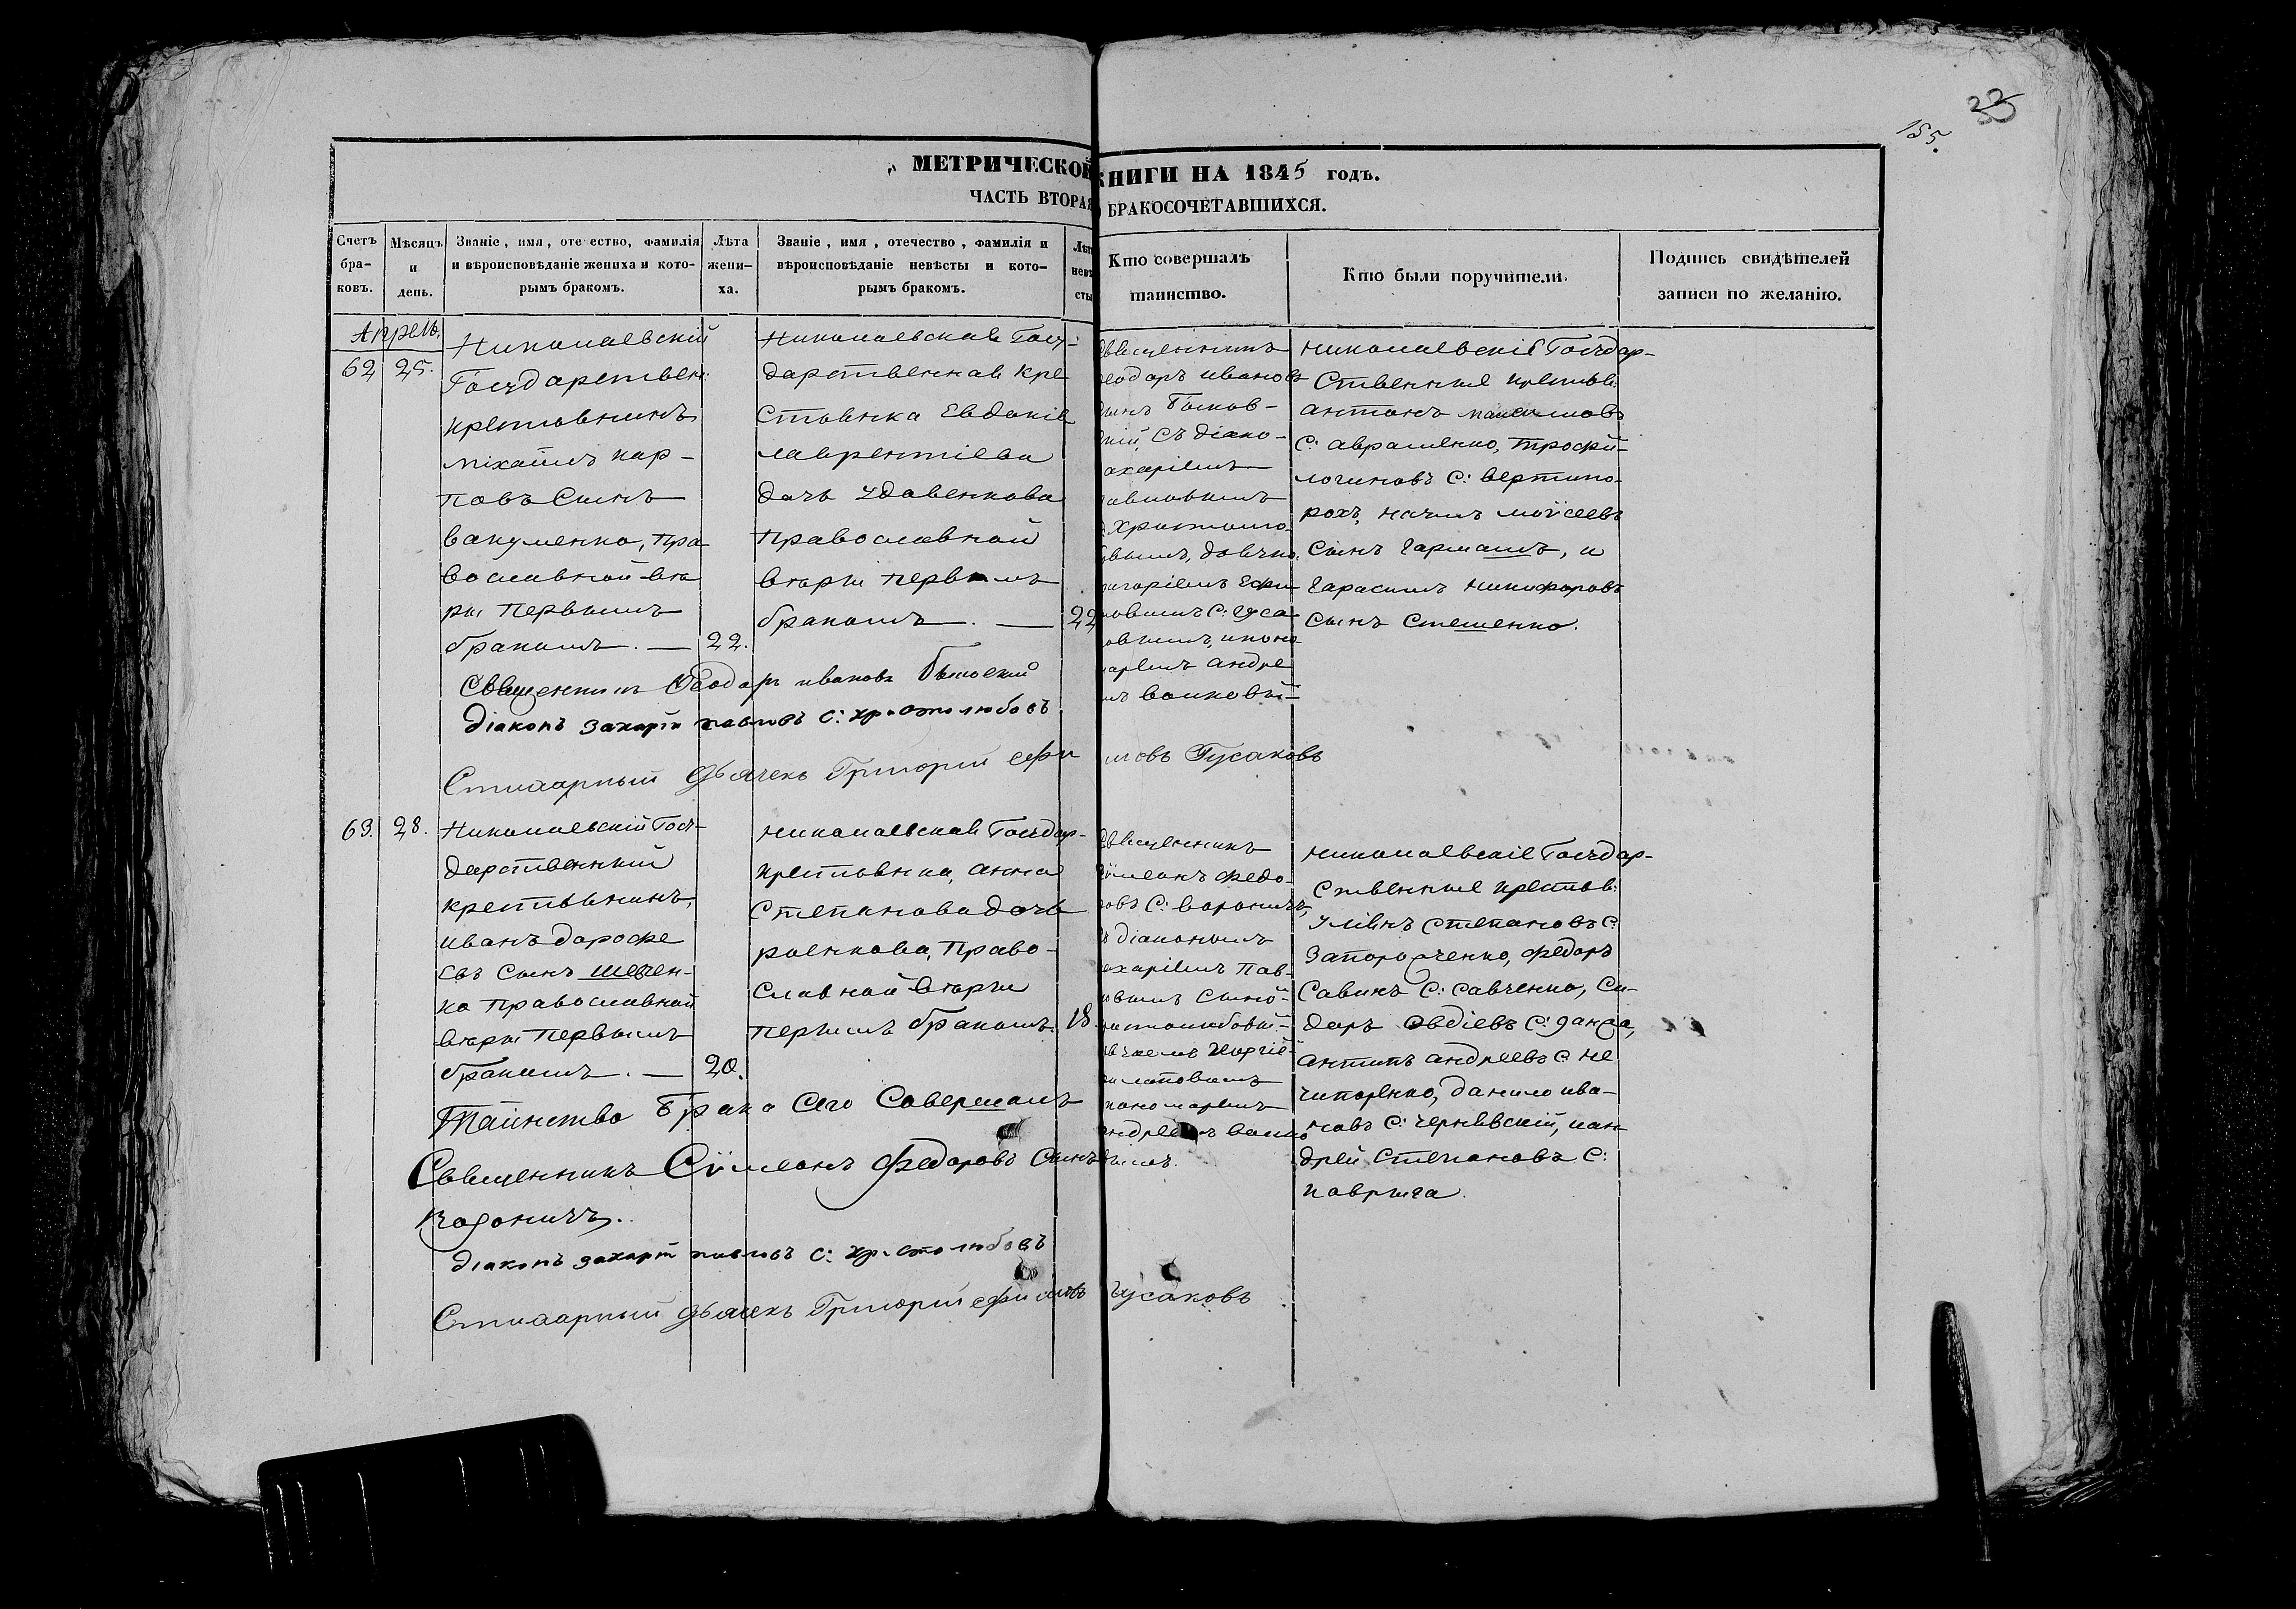 33
155.
МЕТРИЧЕСКОЙ КНИГИ НА 1845 годъ.
ЧАСТЬ ВТОРАЯ БРАКОСОЧЕТАВШИХСЯ.
Счетъ бра-
ковъ.
Мѣсяцъ
и
день.
Званіе, имя, оте ество, фамилія
и вѣроисповѣданіе жениха и кото-
рымъ бракомъ.
Лѣта
жени-
ха.
Званіе, имя, отечество, фамилія и
вѣроисповѣданіе невѣсты и кото-
рымъ бракомъ.
Лѣт
невѣ
сты
Кто совершалъ
таинство.
Кто были поручители.
Подпись свидѣтелей
записи по желанію.
Апрель.
62 25.
Николаевскій
Государствен:
крестьянинъ
михаилъ кар-
повъ Сынъ
вакуменко, Пра
вославной вѣ
ры Первымъ
бракомъ. — 22.
Николаевская Госу-
дарственная кре
стьянка Евдокія
лаврентіева
дочь Удовенкова
Православной
вѣры первымъ
бракомъ. — 22
Священникъ
еодоръ иванов
сынъ
скій, съ діако-
ахаріемъ
авловымъ
Христолю
овымъ, дьячко
ригоріемъ Ефи
мовымъ С: Гуса
овымъ, и поно
маремъ андре
мъ волковы-
Николаевскіе Государ-
ственные крестья:
антонъ максимовъ
С: авраменко, Трофи-
логиновъ С: вертипо-
рохъ, наумъ моѵсеевъ
Сынъ Гармашъ, и
Гарасимъ Никифоровъ
Сынъ Стешенко.
Священникъ Ѳеодоръ ивановъ
Діаконъ Захарій павловъ с: христолюбовъ
Стихарный дьячекъ Григорій ефи мовъ Гусаковъ
63. 28.
Николаевскій Госу-
дарственный
крестьянинъ,
иванъ дорофе
евъ Сынъ шевчен-
ко православной
вѣры первымъ
бракомъ. — 20.
Николаевская Государ-
крестьянка, анна
Степанова дочь
раенкова, Право-
славной вѣры
первымъ бракомъ. 18.
Священникъ
ѵмеонъ Федо-
ровъ С: вороничъ,
ъ діакономъ
ахаріемъ Пав-
ловымъ сыно-
ристолюбовы-
ьячкемъ
пономаремъ
андреемъ волко
вымъ.
Николаевскіе Государ-
ственные крестья:
Степановъ С:
Запорожченко, Федоръ
Савинъ С: Савченко, Си-
доръ Овдіевъ С:
антипъ андреевъ С: не
чипоренко, данило ива-
новъ С: чернявскій, и ан-
дрей Степановъ С:
коврыга.
Таинство Брака сего Совершалъ
Священникъ Сѵмеонъ Федоровъ Сынъ
Вороничъ.
Діаконъ захарій павловъ с: христолюбовъ
Стихарный дьячекъ Григорій ефимовъ Гусаковъ